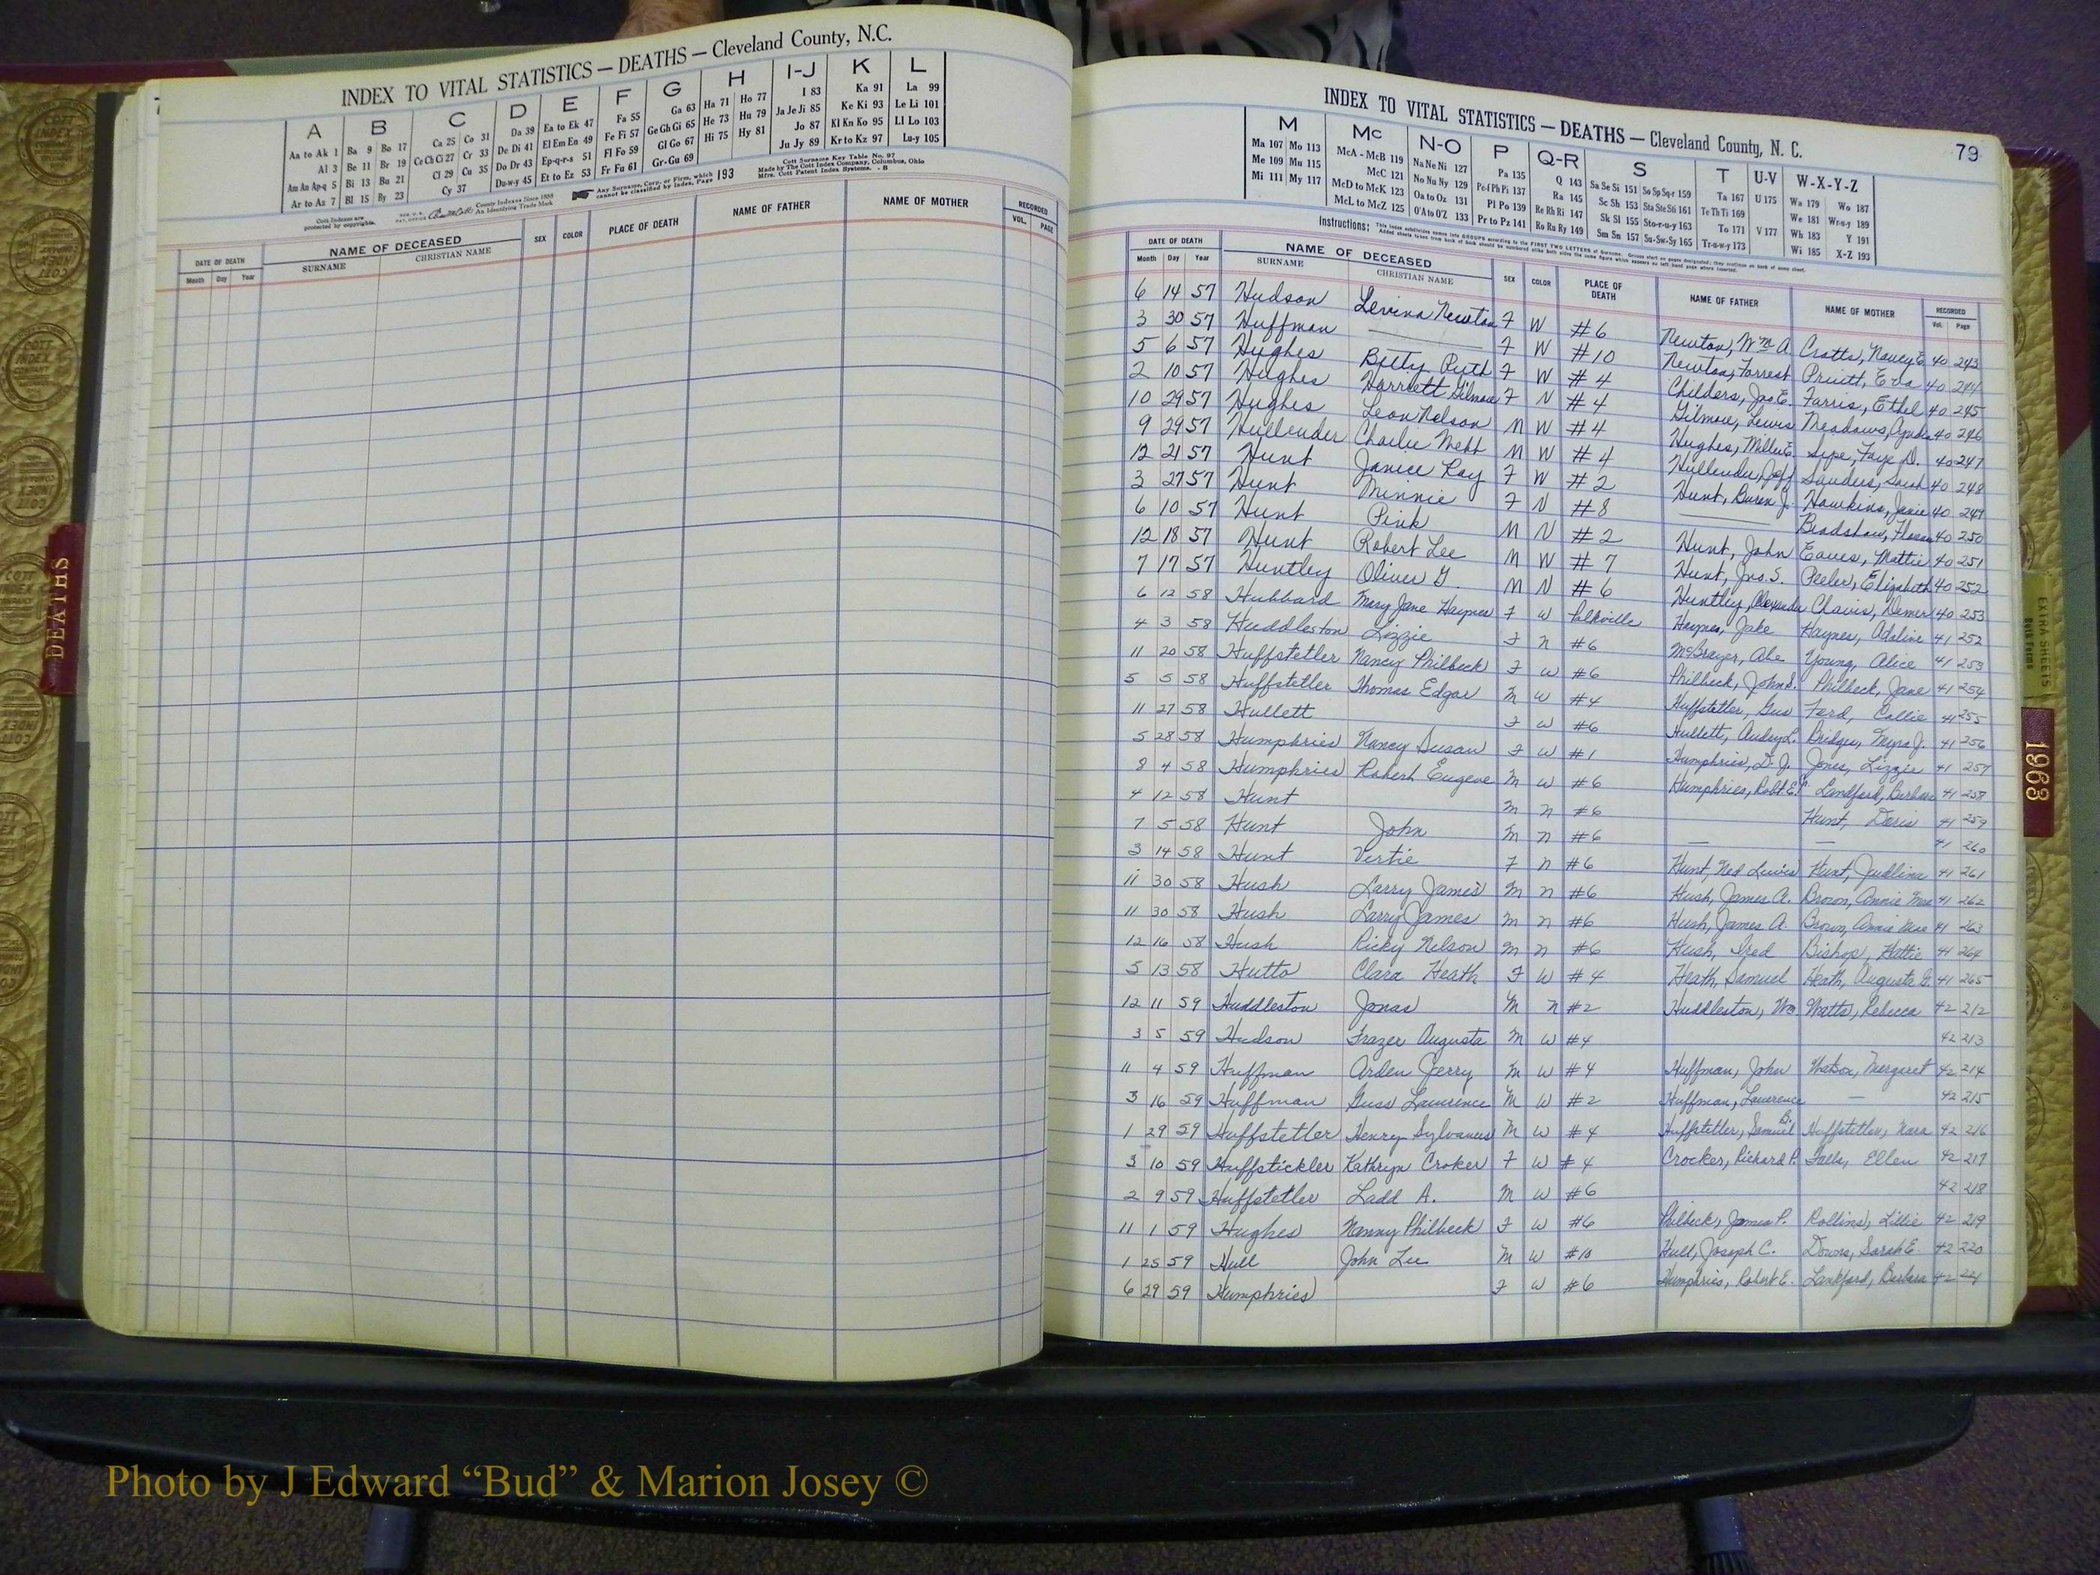 INDEX TO VITAL STATISTICS — DEATHS — Cleveland County, N.C.
A B C D E F G H I-J K L
Aa to Ak 1 Ba 9 Bo 17 Ca 25 Co 31 Da 39 Ea to Ek 47 Fa 55 Ga 63 Ha 71 Ho 77 I 83 Ka 91 La 99
Al 3 Be 11 Br 19 Ce Ch Ci 27 Cr 33 De Di 41 El Em En 49 Fe Fi 57 Ge Gh Gi 65 He 73 Hu 79 Ja Je Ji 85 Ke Ki 93 Le Li 101
Am An Ap-q 5 Bi 13 Bu 21 Cl 29 Cu 35 Do Dr 43 Ep-q-r-s 51 Fl Fo 59 Gl Go 67 Hi 75 Hy 81 Jo 87 Kl Kn Ko 95 Ll Lo 103
Ar to Az 7 Bl 15 By 23 Cy 37 Du-w-y 45 Et to Ez 53 Fr Fu 61 Gr-Gu 69 Ju Jy 89 Kr to Kz 97 Lu-y 105
Cott Indexes are protected by copyrights.
County Indexes Since 1888
An Identifying Trade Mark
Any Surname, Corp. or Firm, which cannot be classified by Index, Page 193
Cott Surname Key Table No. 97
Made by The Cott Index Company, Columbus, Ohio
Mfrs. Cott Patent Index Systems. - B
DATE OF DEATH NAME OF DECEASED SEX COLOR PLACE OF DEATH NAME OF FATHER NAME OF MOTHER RECORDED
Month Day Year SURNAME CHRISTIAN NAME VOL. PAGE
INDEX TO VITAL STATISTICS — DEATHS — Cleveland County, N. C.
79
M Mc N-O P Q-R S T U-V W-X-Y-Z
Ma 107 Mo 113 McA - McB 119 Na Ne Ni 127 Pa 135 Q 143 Sa Se Si 151 So Sp Sq-r 159 Ta 167 U 175 Wa 179 Wo 187
Me 109 Mu 115 McC 121 No Nu Ny 129 Pe-f Ph Pi 137 Ra 145 Sc Sh 153 Sta Ste Sti 161 Te Th Ti 169 We 181 Wr-u-y 189
Mi 111 My 117 McD to McK 123 Oa to Oz 131 Pl Po 139 Re Rh Ri 147 Sk Sl 155 Sto-r-u-y 163 To 171 V 177 Wh 183 Y 191
McL to McZ 125 O'A to O'Z 133 Pr to Pz 141 Ro Ru Ry 149 Sm Sn 157 Su-Sw-Sy 165 Tr-u-w-y 173 Wi 185 X-Z 193
Instructions: This index subdivides names into GROUPS according to the FIRST TWO LETTERS of Surname. Groups start on pages designated; they continue on back of same sheet.
DATE OF DEATH NAME OF DECEASED SEX COLOR PLACE OF DEATH NAME OF FATHER NAME OF MOTHER RECORDED
Month Day Year SURNAME CHRISTIAN NAME Vol. Page
6 14 57 Hudson Levina Newton F W #6 Newton, Wm A Crotts, Nancy E. 40 243
3 30 57 Huffman — F W #10 Newton, Forrest Pruitt, Eva 40 244
5 6 57 Hughes Betty Ruth F W #4 Childers, Jno E. Farris, Ethel 40 245
2 10 57 Hughes Harriett Gilmore F N #4 Gilmore, Lewis Meadows, 40 246
10 29 57 Hughes Leon Nelson M W #4 Hughes, Miller E. Sipe, Faye D. 40 247
9 29 57 Hullender Charlie Webb M W #4 Hullender, Jeff Sanders, Sarah 40 248
12 21 57 Hunt Janice Kay F W #2 Hunt, Buren J. Hawkins, Janie 40 249
3 27 57 Hunt Minnie F N #8 — Bradshaw, 40 250
6 10 57 Hunt Pink M N #2 Hunt, John Eaves, Mattie 40 251
12 18 57 Hunt Robert Lee M W #7 Hunt, Jno. S. Peeler, Elizabeth 40 252
7 17 57 Huntley Oliver G. M N #6 Huntley, Alexander Chavis, 40 253
6 12 58 Hubbard Mary Jane Haynes F W Polkville Haynes, Jake Haynes, Adaline 41 252
4 3 58 Huddleston Lizzie F N #6 McBrayer, Abe Young, Alice 41 253
11 20 58 Huffstetler Nancy Philbeck F W #6 Philbeck, John S. Philbeck, Jane 41 254
5 5 58 Huffstetler Thomas Edgar M W #4 Huffstetler, Gus Ford, Callie 41 255
11 27 58 Hullett F W #6 Hullett, Audry L. Bridges, Myra J. 41 256
5 28 58 Humphries Nancy Susan F W #1 Humphries, D. J. Jones, Lizzie 41 257
8 4 58 Humphries Robert Eugene M W #6 Humphries, Robt. E. Landford, Barbara 41 258
4 12 58 Hunt M N #6 Hunt, Doris 41 259
7 5 58 Hunt John M N #6 — — 41 260
3 14 58 Hunt Vertie F N #6 Hunt, Ned Lewis Hunt, Judlina 41 261
11 30 58 Hush Larry James M N #6 Hush, James A. Brown, Annie Mae 41 262
11 30 58 Hush Larry James M N #6 Hush, James A. Brown, Annie Mae 41 263
12 16 58 Hush Ricky Nelson M N #6 Hush, Fred Bishop, Hattie 41 264
5 13 58 Hutto Clara Heath F W #4 Heath, Samuel Heath, Augusta G. 41 265
12 11 59 Huddleston Jonas M N #2 Huddleston, Wm Watts, Rebecca 42 212
3 5 59 Hudson Frazer Augusta M W #4 42 213
11 4 59 Huffman Arden Jerry M W #4 Huffman, John Watson, Margaret 42 214
3 16 59 Huffman Guss Lawrence M W #2 Huffman, Lawrence — 42 215
1 29 59 Huffstetler Henry Sylvanus M W #4 Huffstetler, Samuel B. Huffstetler, Nara 42 216
3 10 59 Huffstickler Kathryn Croker F W #4 Crocker, Richard P. Falls, Ellen 42 217
2 9 59 Huffstetler Ladd A. M W #6 42 218
11 1 59 Hughes Nanny Philbeck F W #6 Philbeck, James P. Rollins, Lillie 42 219
1 25 59 Hull John Lee M W #10 Hull, Joseph C. Downs, Sarah E 42 220
6 29 59 Humphries F W #6 Humphries, Robert E. Lankford, Barbara 42 221
DEATHS
EXTRA SHEETS
Both Forms
1963
Photo by J Edward “Bud” & Marion Josey ©